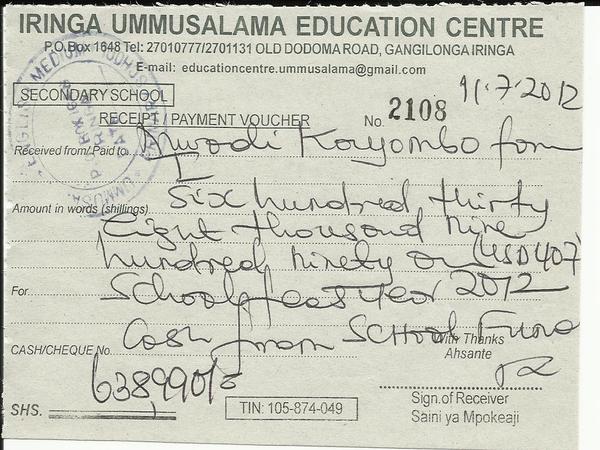 IRINGA UMMUSALAMA EDUCATION CENTRE
P.O.Box 1648 Tel: 27010777/2701131 OLD DODOMA ROAD, GANGILONGA IRINGA
E-mail: educationcentre.ummusalama@gmail.com
11.7.2012
SECONDARY SCHOOL
RECEIPT / PAYMENT VOUCHER No. 2108
Received from/Paid to Kayombo form
I
Amount in words (shillings) Six hundred thirty
Eight thousand nine
hundred ninety one (USD407)
For School fees year 2012
CASH/CHEQUE No. Cash from School Fund
With Thanks
Ahsante
SHS. 638990/=
TIN: 105-874-049
Sign.of Receiver
Saini ya Mpokeaji